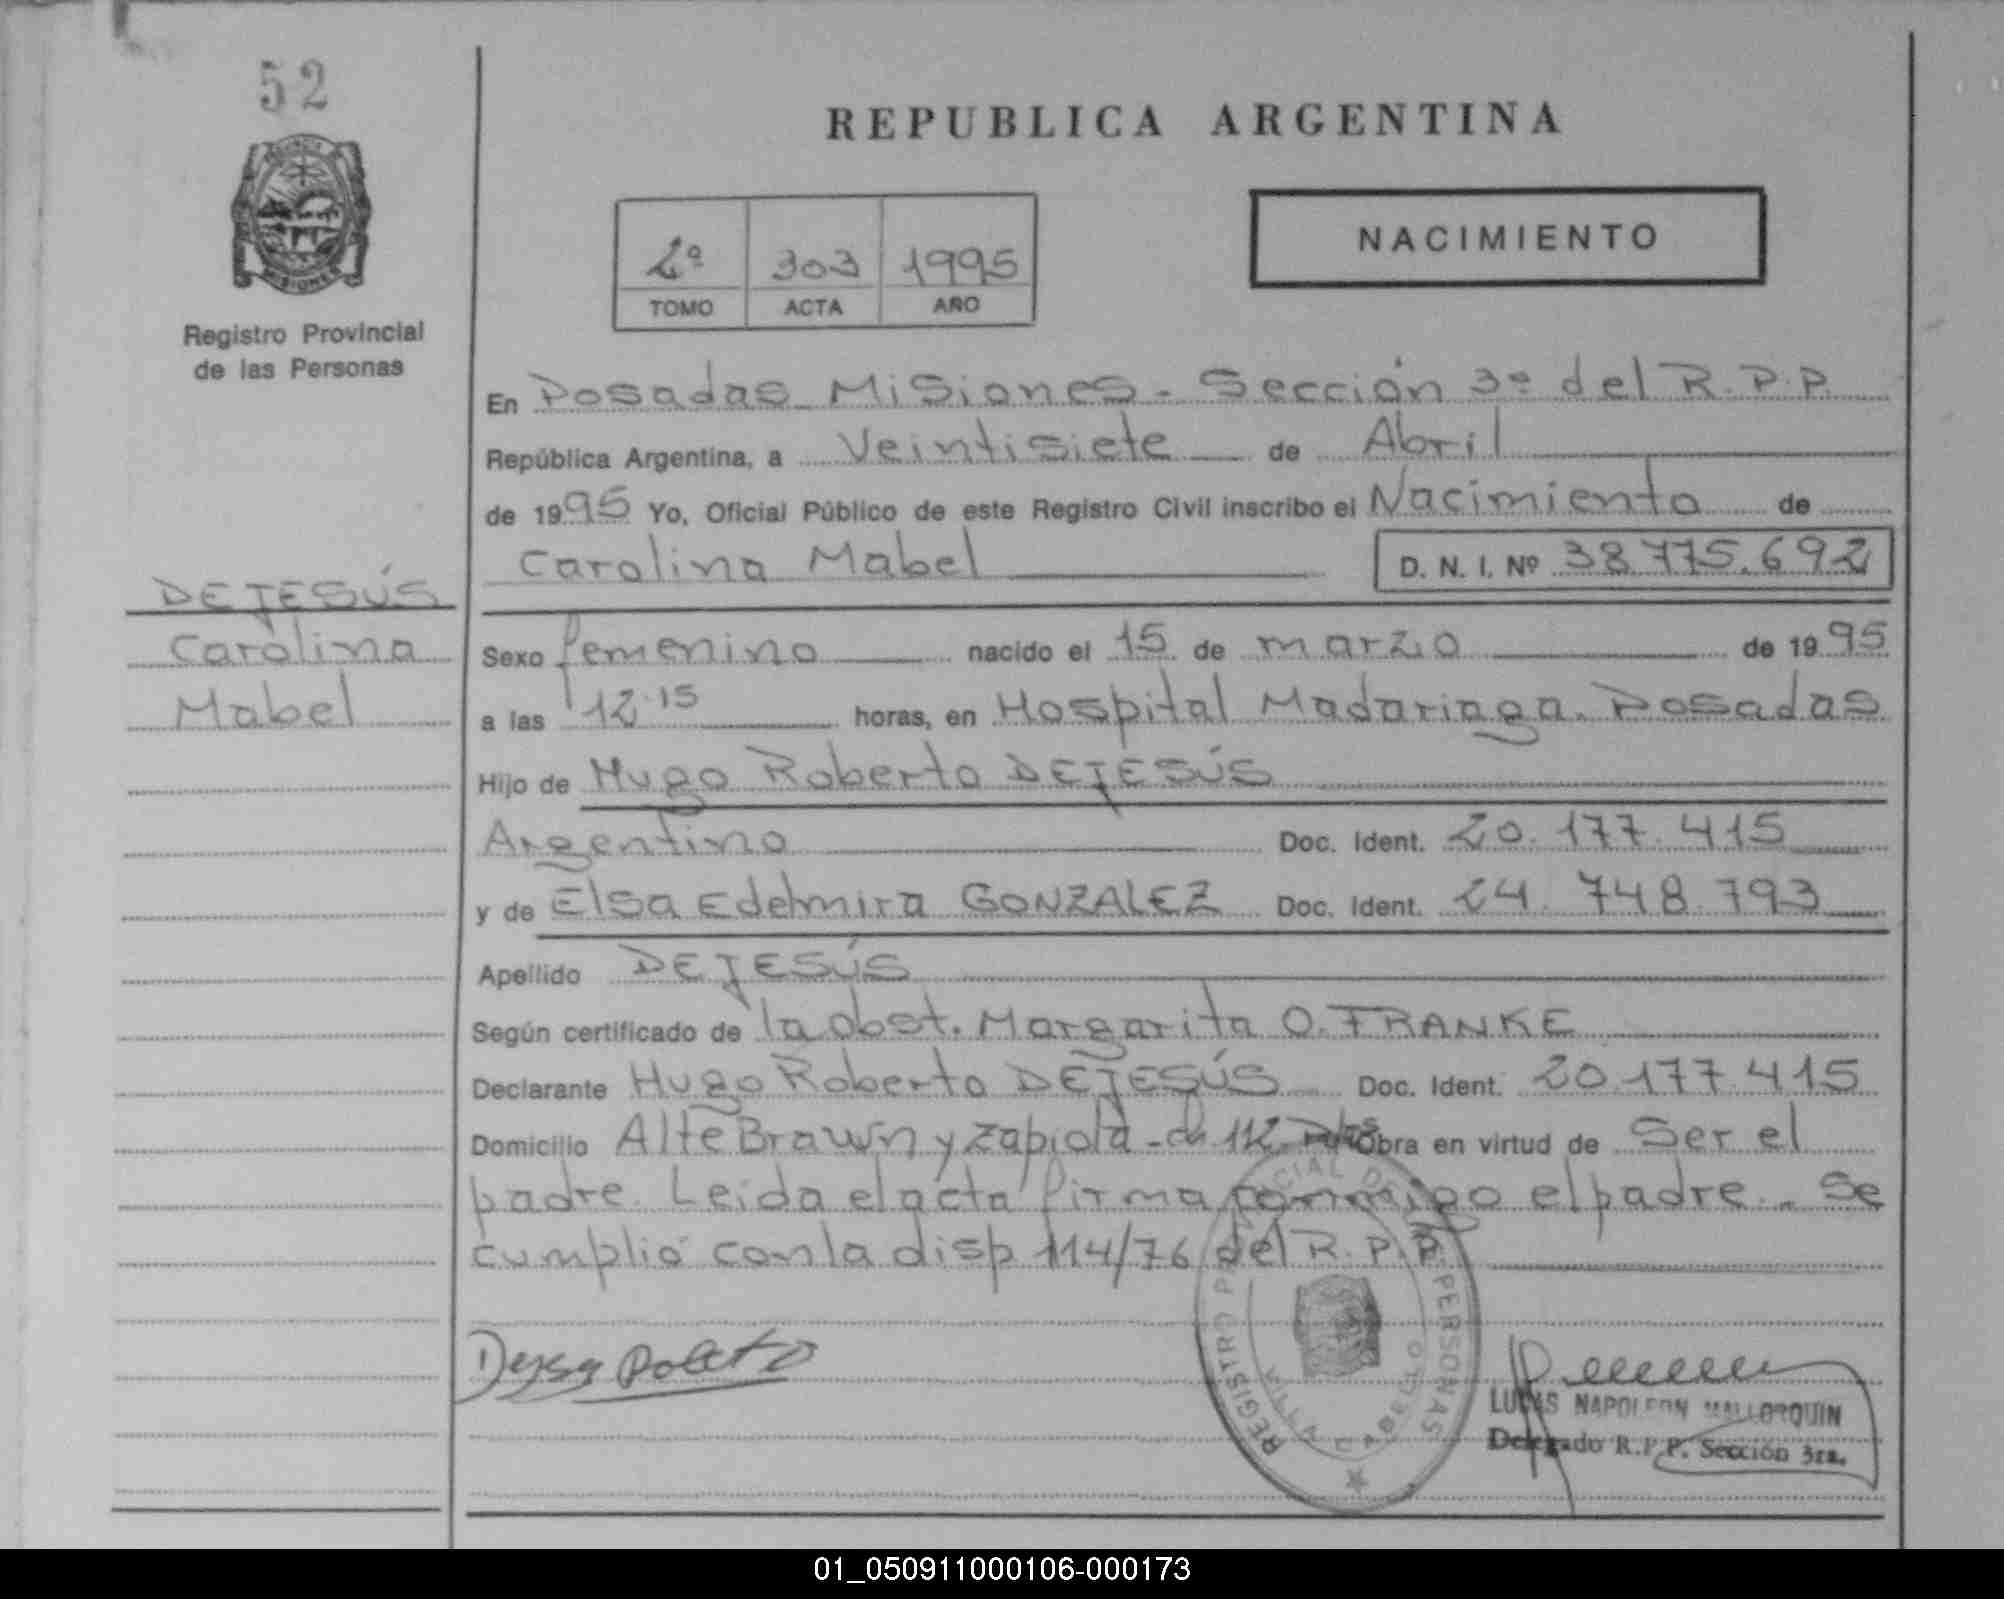 52
Registro Provincial
de las Personas
REPUBLICA ARGENTINA
2º 303 1995
TOMO ACTA AÑO
NACIMIENTO
En Posadas Misiones - Sección 3º del R.P.P.
República Argentina, a Veintisiete de Abril
de 1995 Yo, Oficial Público de este Registro Civil inscribo el Nacimiento de
Carolina Mabel D. N. I. Nº 38.775.692
DEJESÚS
Carolina
Mabel
Sexo femenino nacido el 15 de marzo de 1995
a las 12.15 horas, en Hospital Madariaga. Posadas
Hijo de Hugo Roberto DEJESÚS
Argentino Doc. Ident. 20.177.415
y de Elsa Edelmira GONZALEZ Doc. Ident. 24.748.793
Apellido DEJESÚS
Según certificado de la obst. Margarita O. FRANKE
Declarante Hugo Roberto DEJESÚS Doc. Ident. 20.177.415
Domicilio Alte Brawn y Zapiola - ch 112 Obra en virtud de Ser el
padre. Leida el acta firma conmigo el padre. - Se
cumplió con la disp 114/76 del R.P.P.
REGISTRO PROVINCIAL DE PERSONAS
VILLA CABELLO
LUCAS NAPOLEON MALLORQUIN
Delegado R.P.P. Sección 3ra.
01_050911000106-000173